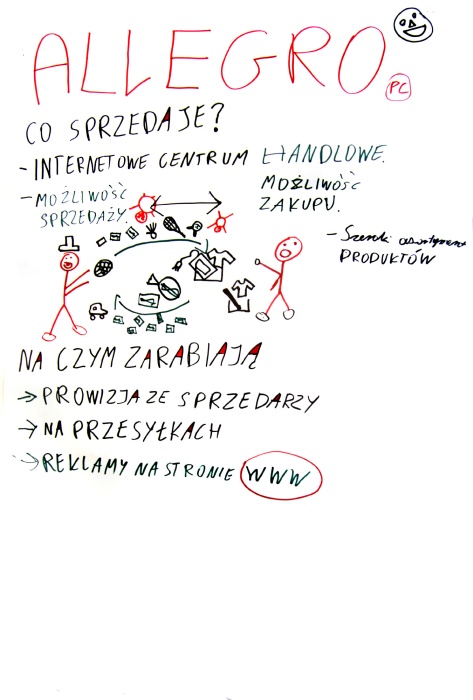 ALLEGRO
PC
CO SPRZEDAJE?
- INTERNETOWE CENTRUM HANDLOWE.
- MOŻLIWOŚĆ
SPRZEDAŻY.
MOŻLIWOŚĆ
ZAKUPU.
- Szeroki asortyment
PRODUKTÓW
NA CZYM ZARABIAJĄ
→ PROWIZJA ZE SPRZEDARZY
→ NA PRZESYŁKACH
→ REKLAMY NA STRONIE WWW